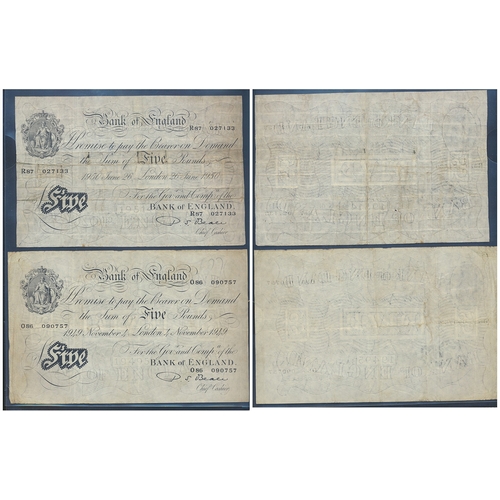 Bank of England
R87 027133
I Promise to pay the Bearer on Demand
R87 027133 the Sum of Five Pounds
1950 June 26 London 26 June 1950
For the Govr. and Compa. of the
Five BANK OF ENGLAND
R87 027133
P S Beale
Chief Cashier
Bank of England
O86 090757
I Promise to pay the Bearer on Demand
O86 090757 the Sum of Five Pounds
1949 November 4 London 4 November 1949
For the Govr. and Compa. of the
Five BANK OF ENGLAND
O86 090757
P S Beale
Chief Cashier